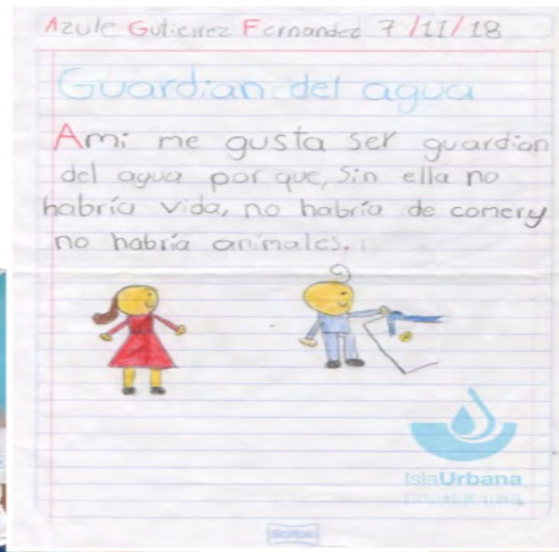 Azule Gutierrez Fernandez 7/11/18
Guardian del agua
Ami me gusta ser guardian
del agua por que, sin ella no
habría vida, no habría de comer y
no habría animales.
IslaUrbana
Scribe